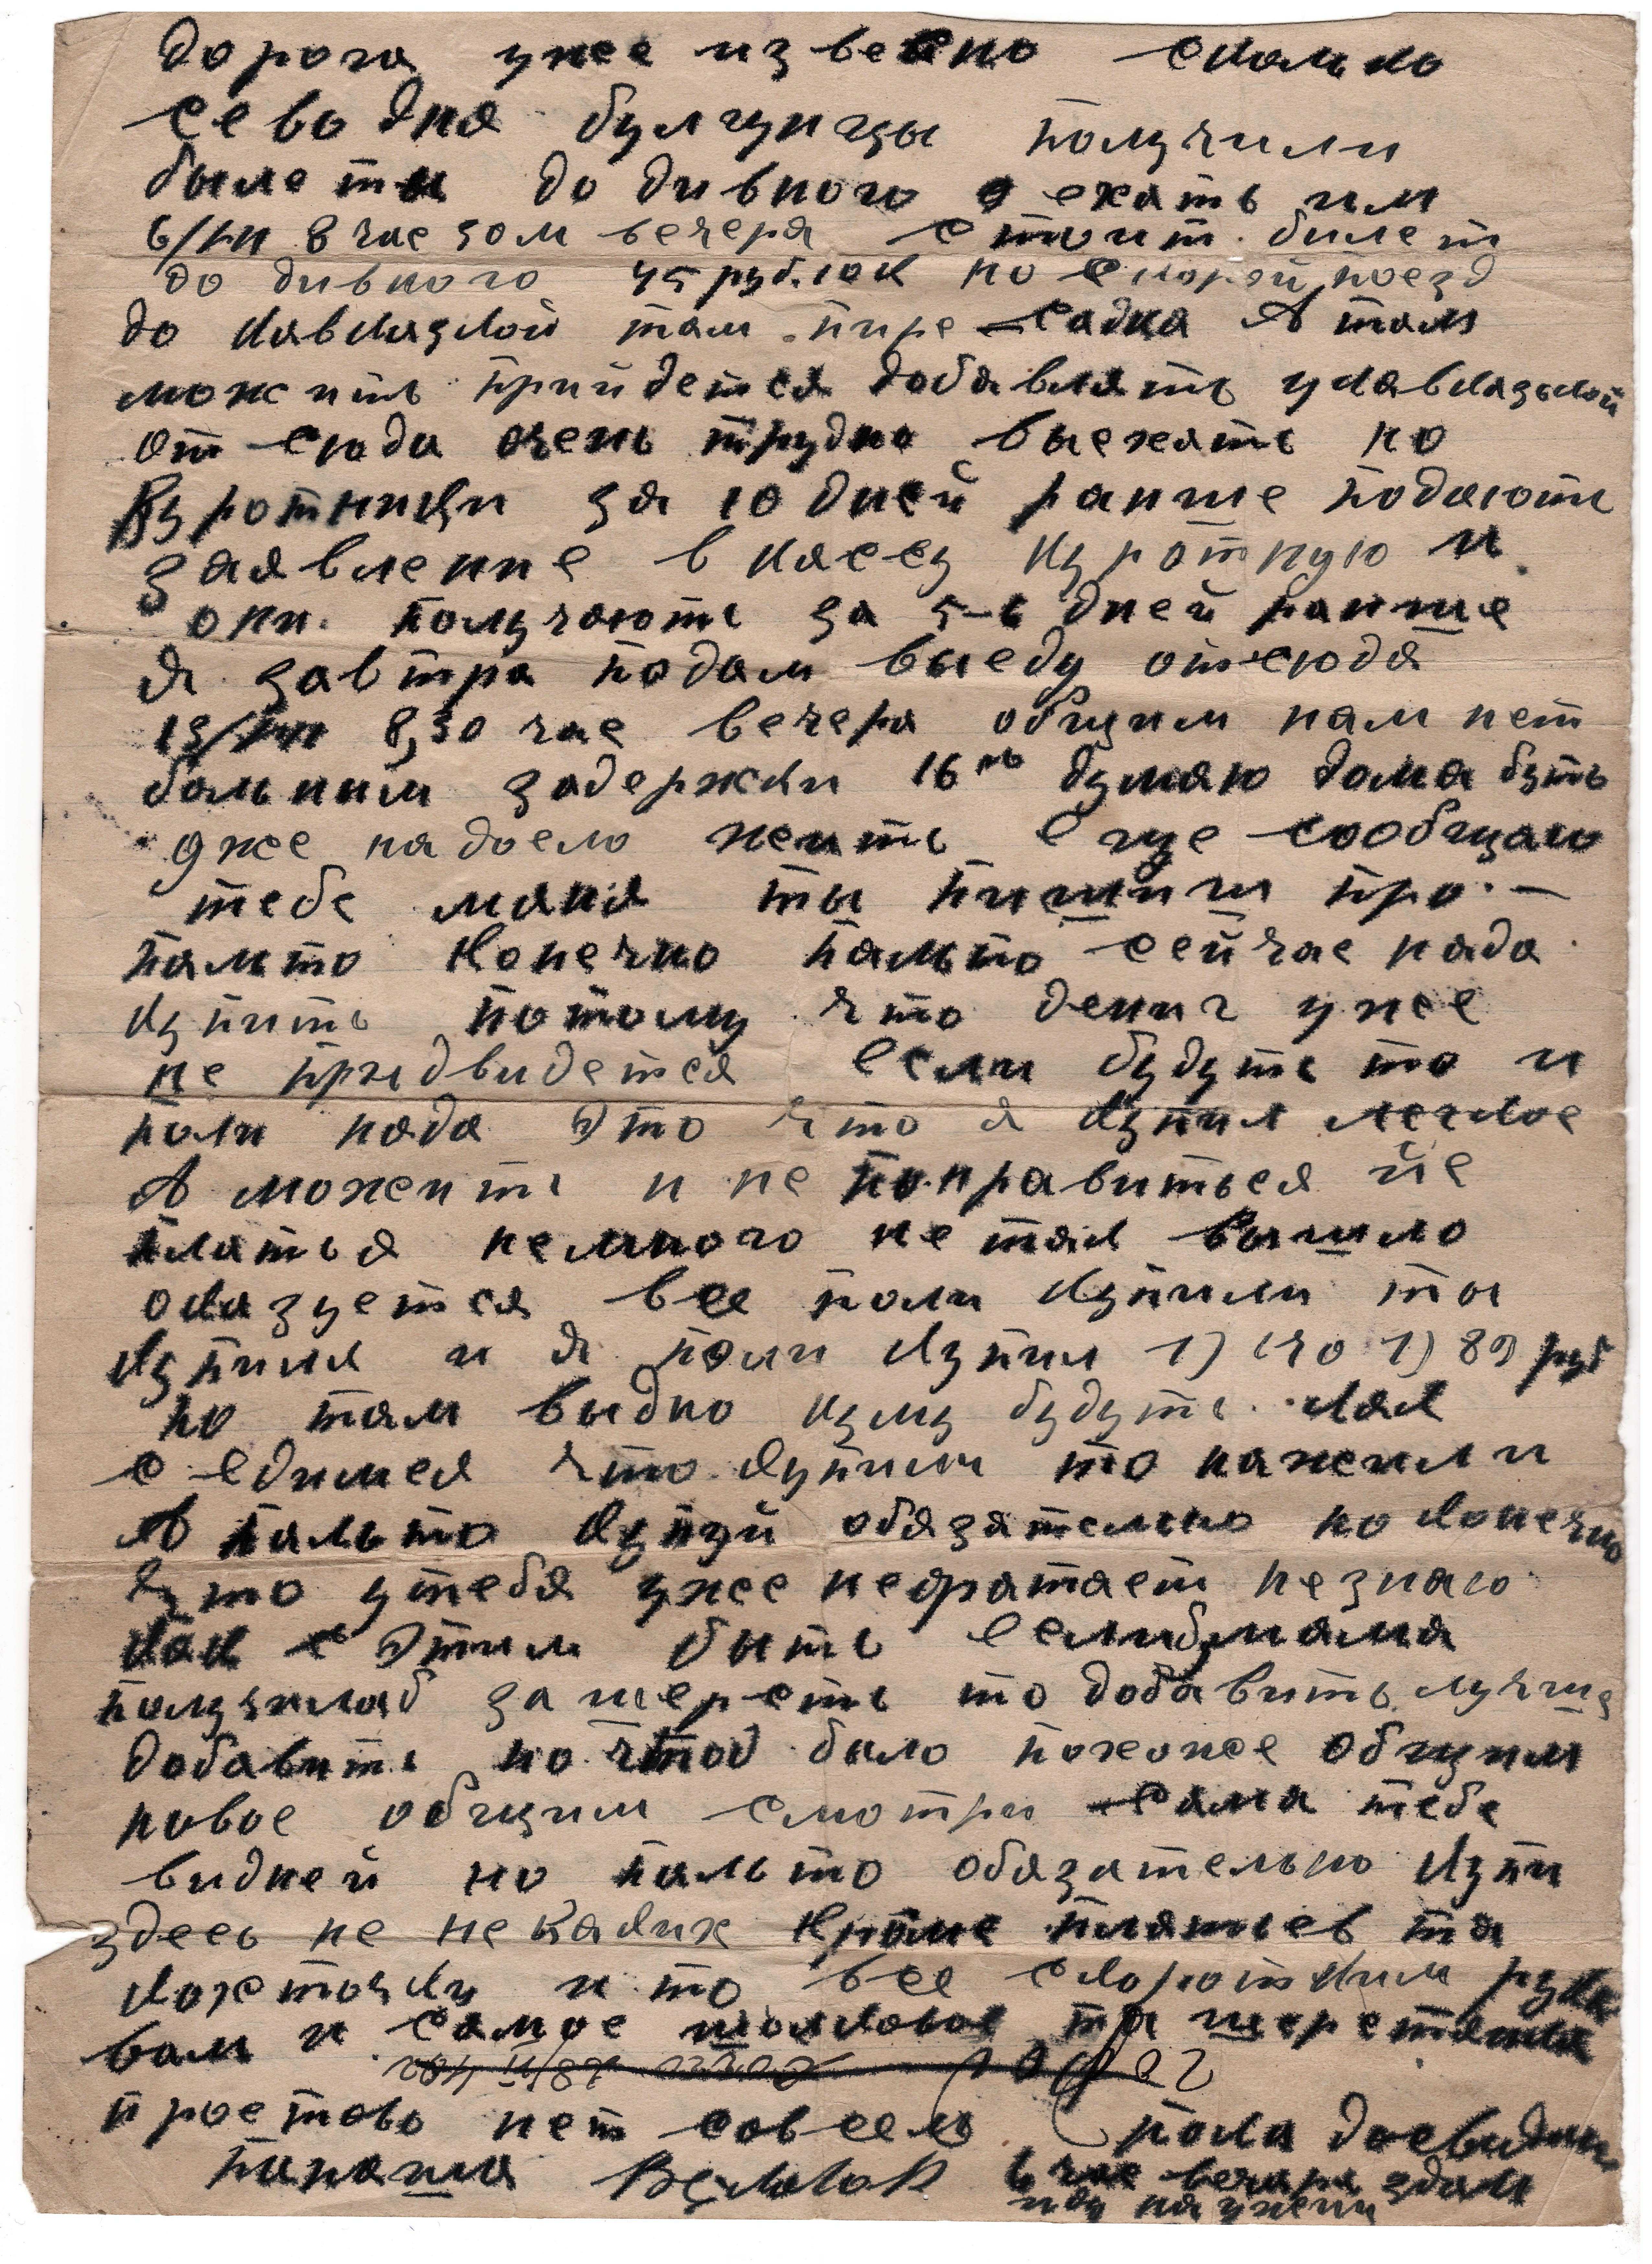 дорога уже извесно сколько
севодня булгунцы получили
былеты до дивного уехать им
6/VII 8 час 30 м вечера стоит билет
до дивного 45 рублюк но скорой поезд
до кавказкой там пире-садка А там
можить прийдется добавлять укавказькой
от сюда очень трудно выехать но
Куротници за 10 дней ранше подають
заявление в кассу куротную и
они получають за 5-6 дней ранше
Я завтра подам выеду отсюда
13/VII 8,30 час вечера общим нам нет
больным задержки 16 го думаю дома бу́ть
уже надоело жить еще сообщаю
тебе маня ты пишиш про-
пальто Конечно пальто сейчас нада
купить потому что дениг уже
не придвидется если будуть то и
поли нада это что я купил легкое
А можеть и не понравиться йе
платья немного не так вышло
оказуется все поли купили ты
купиля и я поли купил 1) 140 1) 89 руб
но там выдно куму будуть. как
с едимся что купили то нажили
А пальто купуй обязательно но конечно
что утебя уже нефатает незнаю
как с этим быть еслибмама
получилаб за шерсть то добавить лучше
добавить но чтоб было похоже общим
новое общим смотри сама тебе
видней но пальто обязательно купи
здесь не не каких кроме платьев та
кохточки и то все скоротким рука
вом и самое шолковое та шерстяное
простово нет совсем пока досвидания
Папаша 6 час вечера здам
иду на ужени